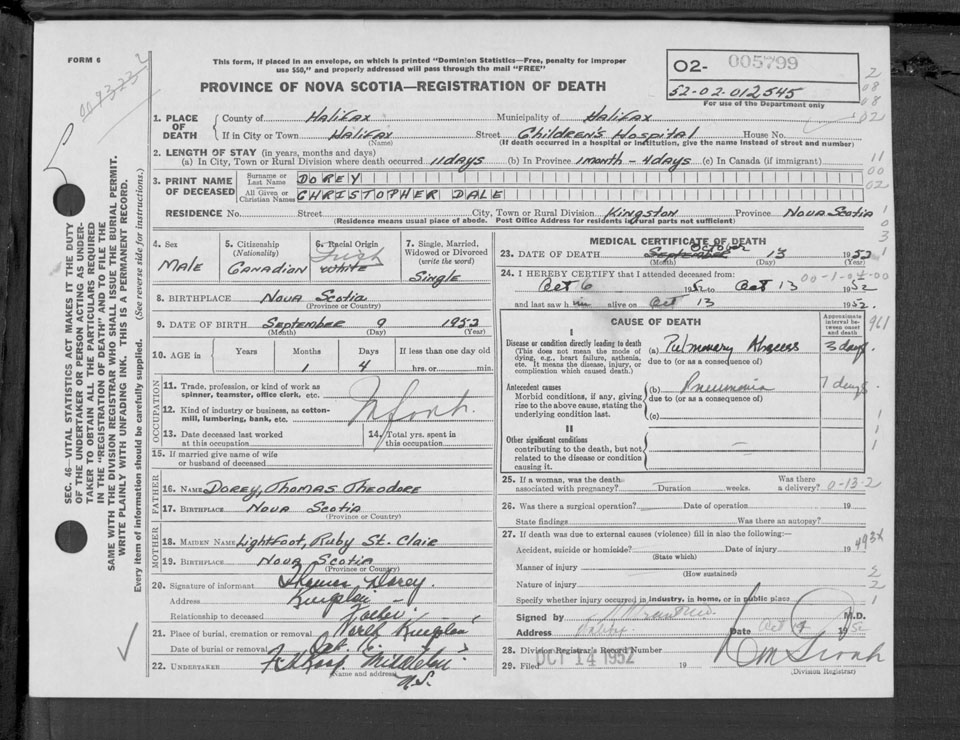 FORM 6
This form, if placed in an envelope, on which is printed "Dominion Statistics—Free, penalty for improper
use $50," and properly addressed will pass through the mail "FREE"
PROVINCE OF NOVA SCOTIA—REGISTRATION OF DEATH
02- 005799
52-02-012545
For use of the Department only
SEC. 46—VITAL STATISTICS ACT MAKES IT THE DUTY
OF THE UNDERTAKER OR PERSON ACTING AS UNDER-
TAKER TO OBTAIN ALL THE PARTICULARS REQUIRED
IN THE "REGISTRATION OF DEATH" AND TO FILE THE
SAME WITH THE DIVISION REGISTRAR WHO SHALL ISSUE THE BURIAL PERMIT.
WRITE PLAINLY WITH UNFADING INK. THIS IS A PERMANENT RECORD.
Every item of information should be carefully supplied. (See reverse side for instructions.)
1. PLACE OF DEATH County of Halifax Municipality of Halifax
If in City or Town Halifax Street Children's Hospital House No.
(Name) (If death occurred in a hospital or institution, give the name instead of street and number)
2. LENGTH OF STAY (in years, months and days)
(a) In City, Town or Rural Division where death occurred 11 days (b) In Province 1 month - 4 days (c) In Canada (if immigrant)
3. PRINT NAME OF DECEASED Surname or Last Name DOREY
All Given or Christian Names CHRISTOPHER DALE
RESIDENCE No. Street City, Town or Rural Division Kingston Province Nova Scotia
(Residence means usual place of abode. Post Office Address for residents in rural parts not sufficient)
4. Sex Male
5. Citizenship (Nationality) Canadian
6. Racial Origin Irish White
7. Single, Married, Widowed or Divorced (write the word) Single
8. BIRTHPLACE Nova Scotia
(Province or Country)
9. DATE OF BIRTH September 9 1952
(Month) (Day) (Year)
10. AGE in Years Months Days If less than one day old
1 4 hrs. or min.
OCCUPATION
11. Trade, profession, or kind of work as
spinner, teamster, office clerk, etc.
12. Kind of industry or business, as cotton-
mill, lumbering, bank, etc.
Infant.
13. Date deceased last worked
at this occupation
14. Total yrs. spent in
this occupation
15. If married give name of wife
or husband of deceased
FATHER
16. NAME Dorey, Thomas Theodore
17. BIRTHPLACE Nova Scotia
(Province or Country)
MOTHER
18. MAIDEN NAME Lightfoot, Ruby St. Clair
19. BIRTHPLACE Nova Scotia
(Province or Country)
20. Signature of informant Thomas Dorey.
Address Kingston
Relationship to deceased Father
21. Place of burial, cremation or removal North Kingston
Date of burial or removal Oct.
22. UNDERTAKER Middleton
(Name and address) N.S.
MEDICAL CERTIFICATE OF DEATH
23. DATE OF DEATH September October 13 1952
(Month) (Day) (Year)
24. I HEREBY CERTIFY that I attended deceased from:
Oct 6 1952 to Oct 13 1952
and last saw him alive on Oct 13 1952.
CAUSE OF DEATH
Approximate interval between onset and death
I
Disease or condition directly leading to death
(This does not mean the mode of dying, e.g., heart failure, asthenia, etc. It means the disease, injury, or complication which caused death.)
(a) Pulmonary Abscess 3 days.
due to (or as a consequence of)
Antecedent causes
Morbid conditions, if any, giving rise to the above cause, stating the underlying condition last.
(b) Pneumonia 7 days.
due to (or as a consequence of)
(c)
II
Other significant conditions
contributing to the death, but not related to the disease or condition causing it.
25. If a woman, was the death
associated with pregnancy? Duration weeks. Was there a delivery? 0-13-2
26. Was there a surgical operation? Date of operation 19
State findings Was there an autopsy?
27. If death was due to external causes (violence) fill in also the following:—
Accident, suicide or homicide? Date of injury 19
(State which)
Manner of injury
(How sustained)
Nature of injury
Specify whether injury occurred in industry, in home, or in public place
Signed by M.D.
Address Halifax Date Oct 1952
28. Division Registrar's Record Number
29. Filed OCT 14 1952 19
(Division Registrar)